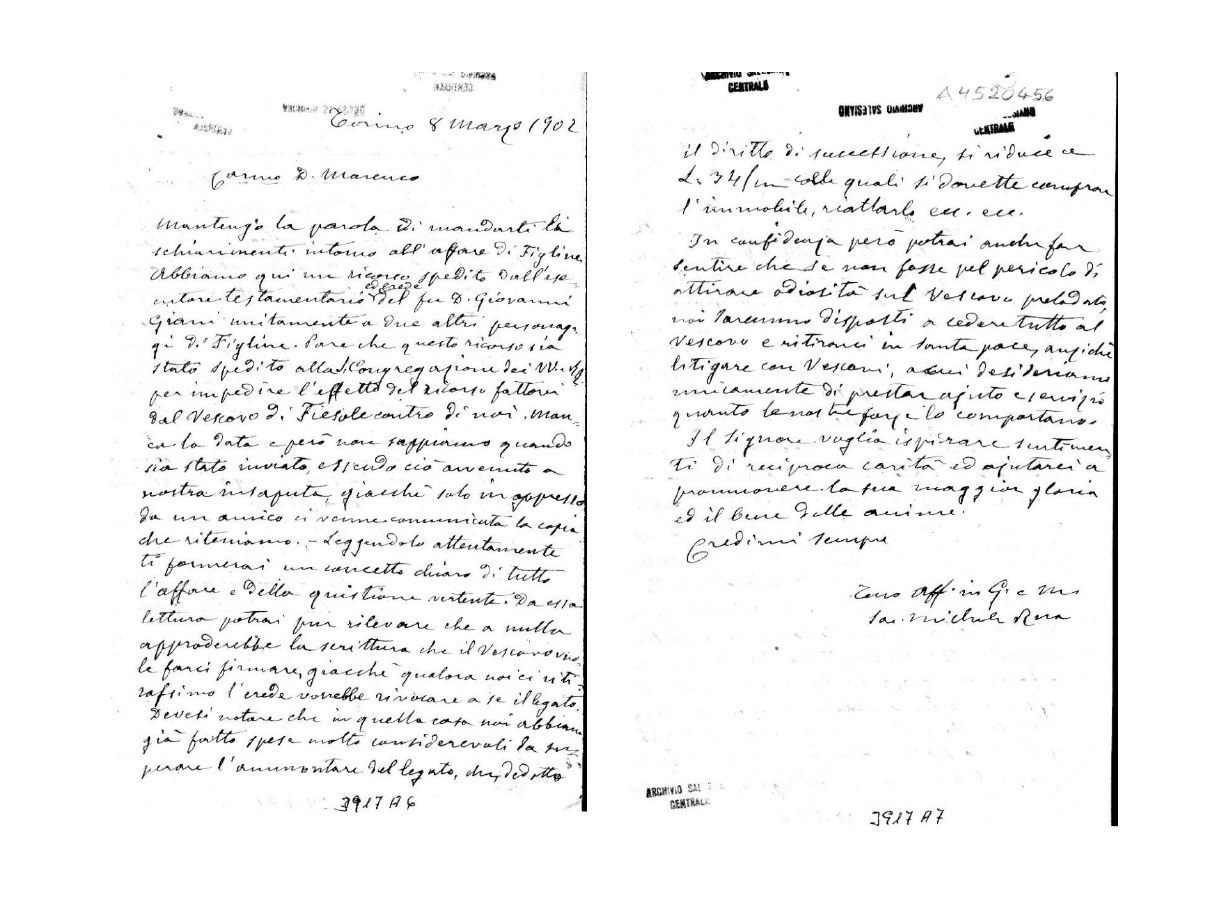 CENTRALE
Torino 8 Marzo 1902
Carmo D. Marenco
Mantengo la parola di mandarti li
schiarimenti intorno all'affare di Figline.
Abbiamo qui un ricorso spedito dall'ese-
cutore testamentario ed erede del fu D. Giovanni
Giani unitamente a due altri personag-
gi di Figline. Pare che questo ricorso sia
stato spedito alla S. Congregazione dei VV. e RR.
per impedire l'effetto del ricorso fattovi
dal Vescovo di Fiesole contro di noi. Man-
ca la data e però non sappiamo quando
sia stato inviato, essendo ciò avvenuto a
nostra insaputa, giacchè solo in appresso
da un amico ci venne comunicata la copia
che riteniamo. - Leggendolo attentamente
ti formerai un concetto chiaro di tutto
l'affare e della quistione vertente. Da essa
lettura potrai pur rilevare che a nulla
approderebbe la scrittura che il Vescovo vuo-
le farci firmare, giacchè qualora noi ci riti-
rassimo l'erede vorrebbe rivocare a se il legato.
Devesi notare che in quella casa noi abbiamo
già fatto spese molto considerevoli da su-
perare l'ammontare del legato, che, dedotto
3917 A6
ARCHIVIO SALESIANO
CENTRALE
A4520456
ARCHIVIO SALESIANO
CENTRALE
il diritto di successione, si riduce a
L. 34/m colle quali si dovette comprar
l'immobile, riattarlo ecc. ecc.
In confidenza però potrai anche far
sentire che se non fosse pel pericolo di
attirare odiosità sul Vescovo prelodato,
noi saremmo disposti a cedere tutto al
Vescovo e ritirarci in santa pace, anzichè
litigare con Vescovi, a cui desideriamo
unicamente di prestar ajuto e servizio
quanto le nostre forze lo comportano.
Il Signore voglia ispirare sentimen-
ti di reciproca carità ed ajutarci a
promuovere la sua maggior gloria
ed il bene delle anime.
Credimi sempre
Tuo aff. in G. e M.
Sac. Michele Rua
ARCHIVIO SAL
CENTRALE
3917 A7